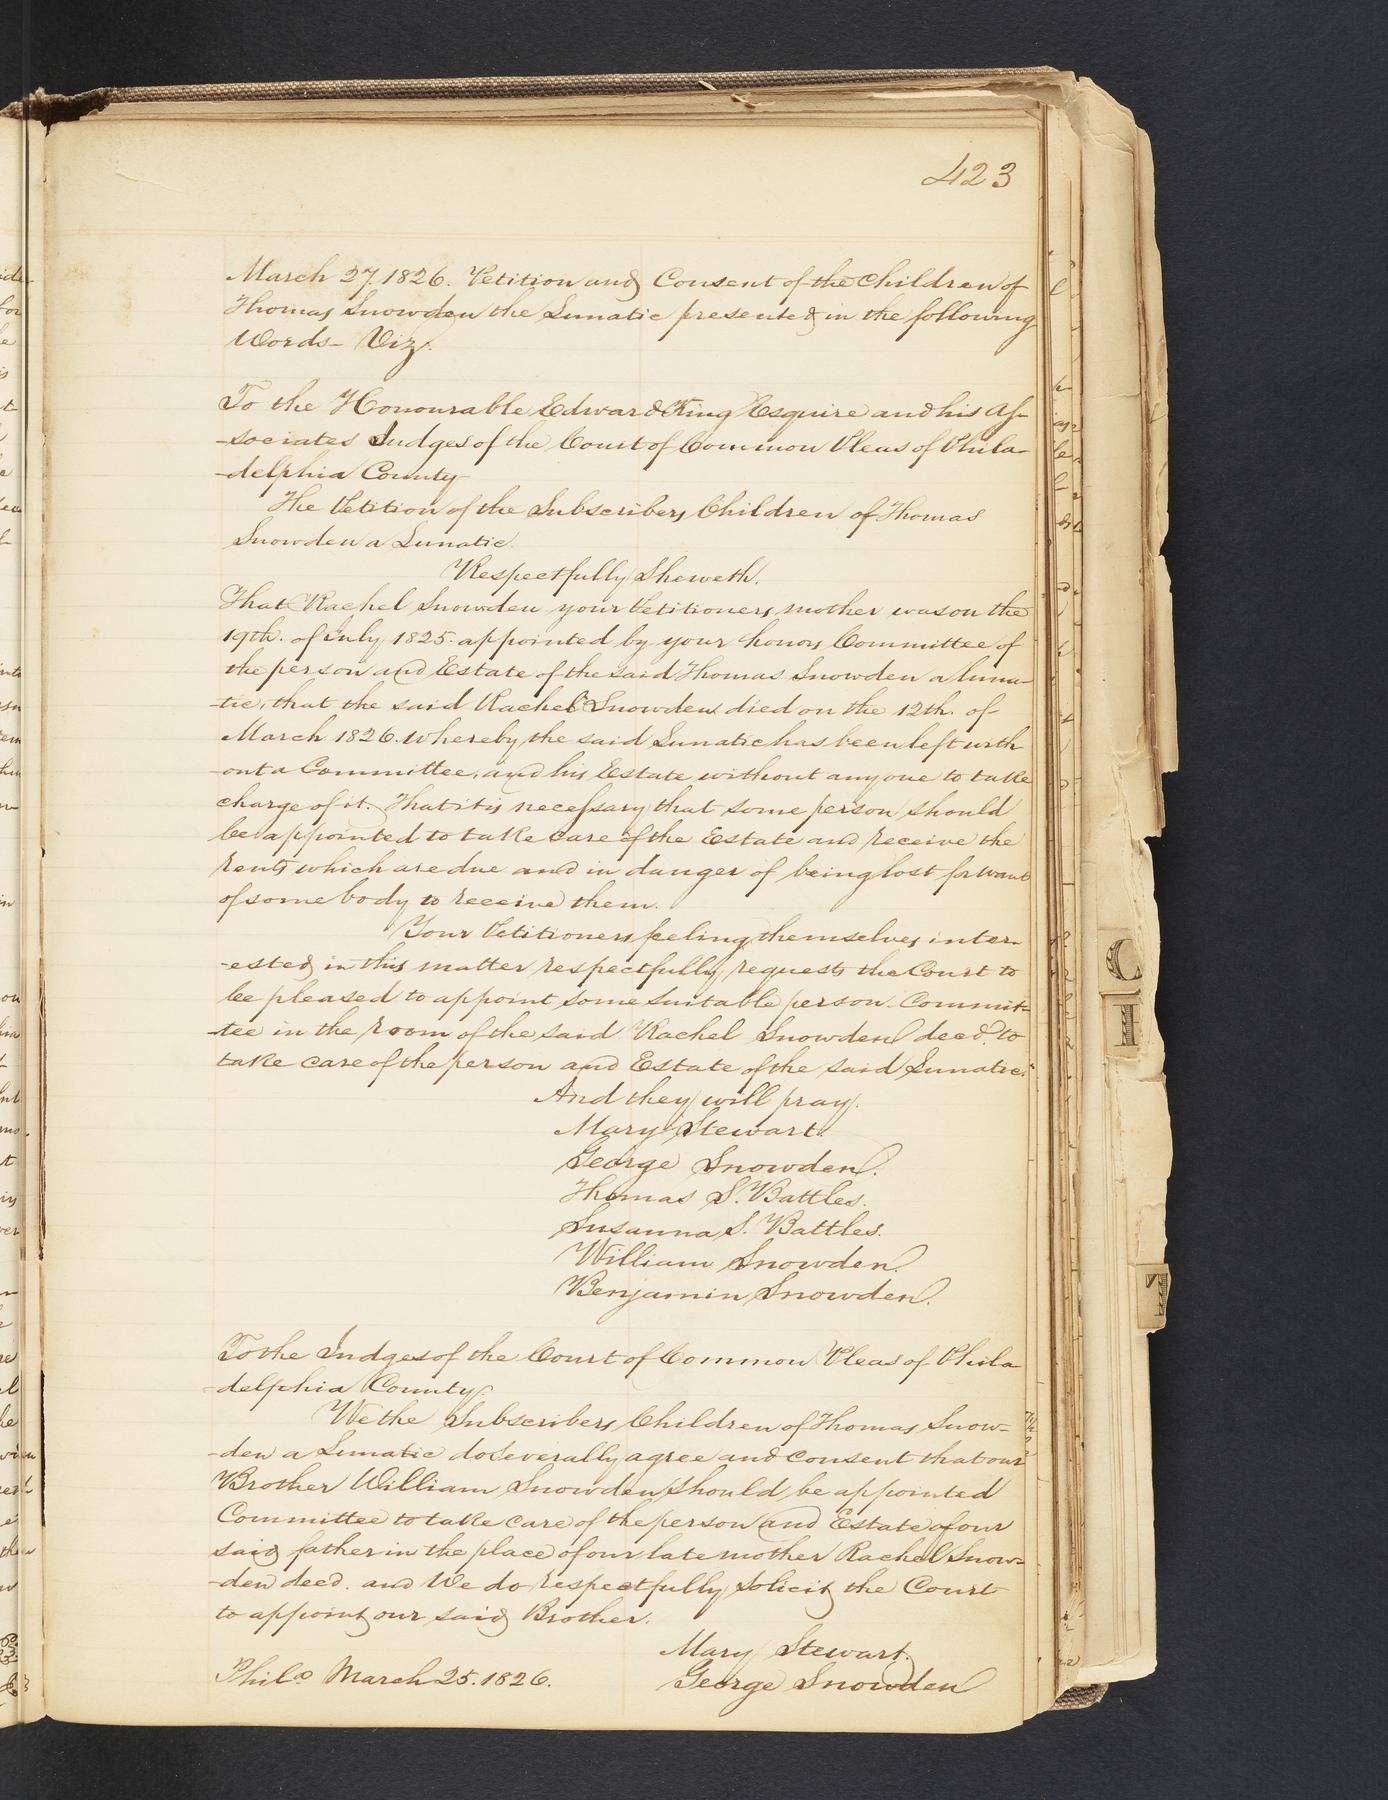 423
March 27. 1826. Petition and Consent of the Children of
Thomas Snowden the Lunatic presented in the following
Words – Viz.
To the Honourable Edward King Esquire and his As-
-sociates Judges of the Court of Common Pleas of Phila-
-delphia County
The Petition of the Subscribers Children of Thomas
Snowden a Lunatic.
Respectfully Sheweth.
That Rachel Snowden your Petitioners mother was on the
19th. of July 1825. appointed by your honors Committee of
the person and Estate of the said Thomas Snowden a luna-
tic, that the said Rachel Snowden died on the 12th. of
March 1826. whereby the said Lunatic has been left with-
-out a Committee, and his Estate without any one to take
charge of it. That it is necessary that some person should
be appointed to take care of the Estate and receive the
rents which are due and in danger of being lost for want
of some body to receive them.
Your Petitioners feeling themselves inter-
-ested in this matter respectfully requests the Court to
be pleased to appoint some suitable person Commit-
-tee in the room of the said Rachel Snowden decd. to
take care of the person and Estate of the said Lunatic.
And they will pray.
Mary Stewart.
George Snowden.
Thomas S. Battles.
Susanna S. Battles.
William Snowden.
Benjamin Snowden.
To the Judges of the Court of Common Pleas of Phila-
-delphia County.
We the Subscribers Children of Thomas Snow-
-den a Lunatic do severally agree and consent that our
Brother William Snowden should be appointed
Committee to take care of the person and Estate of our
said father in the place of our late mother Rachel Snow-
-den decd. and We do respectfully solicit the Court
to appoint our said Brother.
Mary Stewart.
Phila. March 25. 1826.
George Snowden